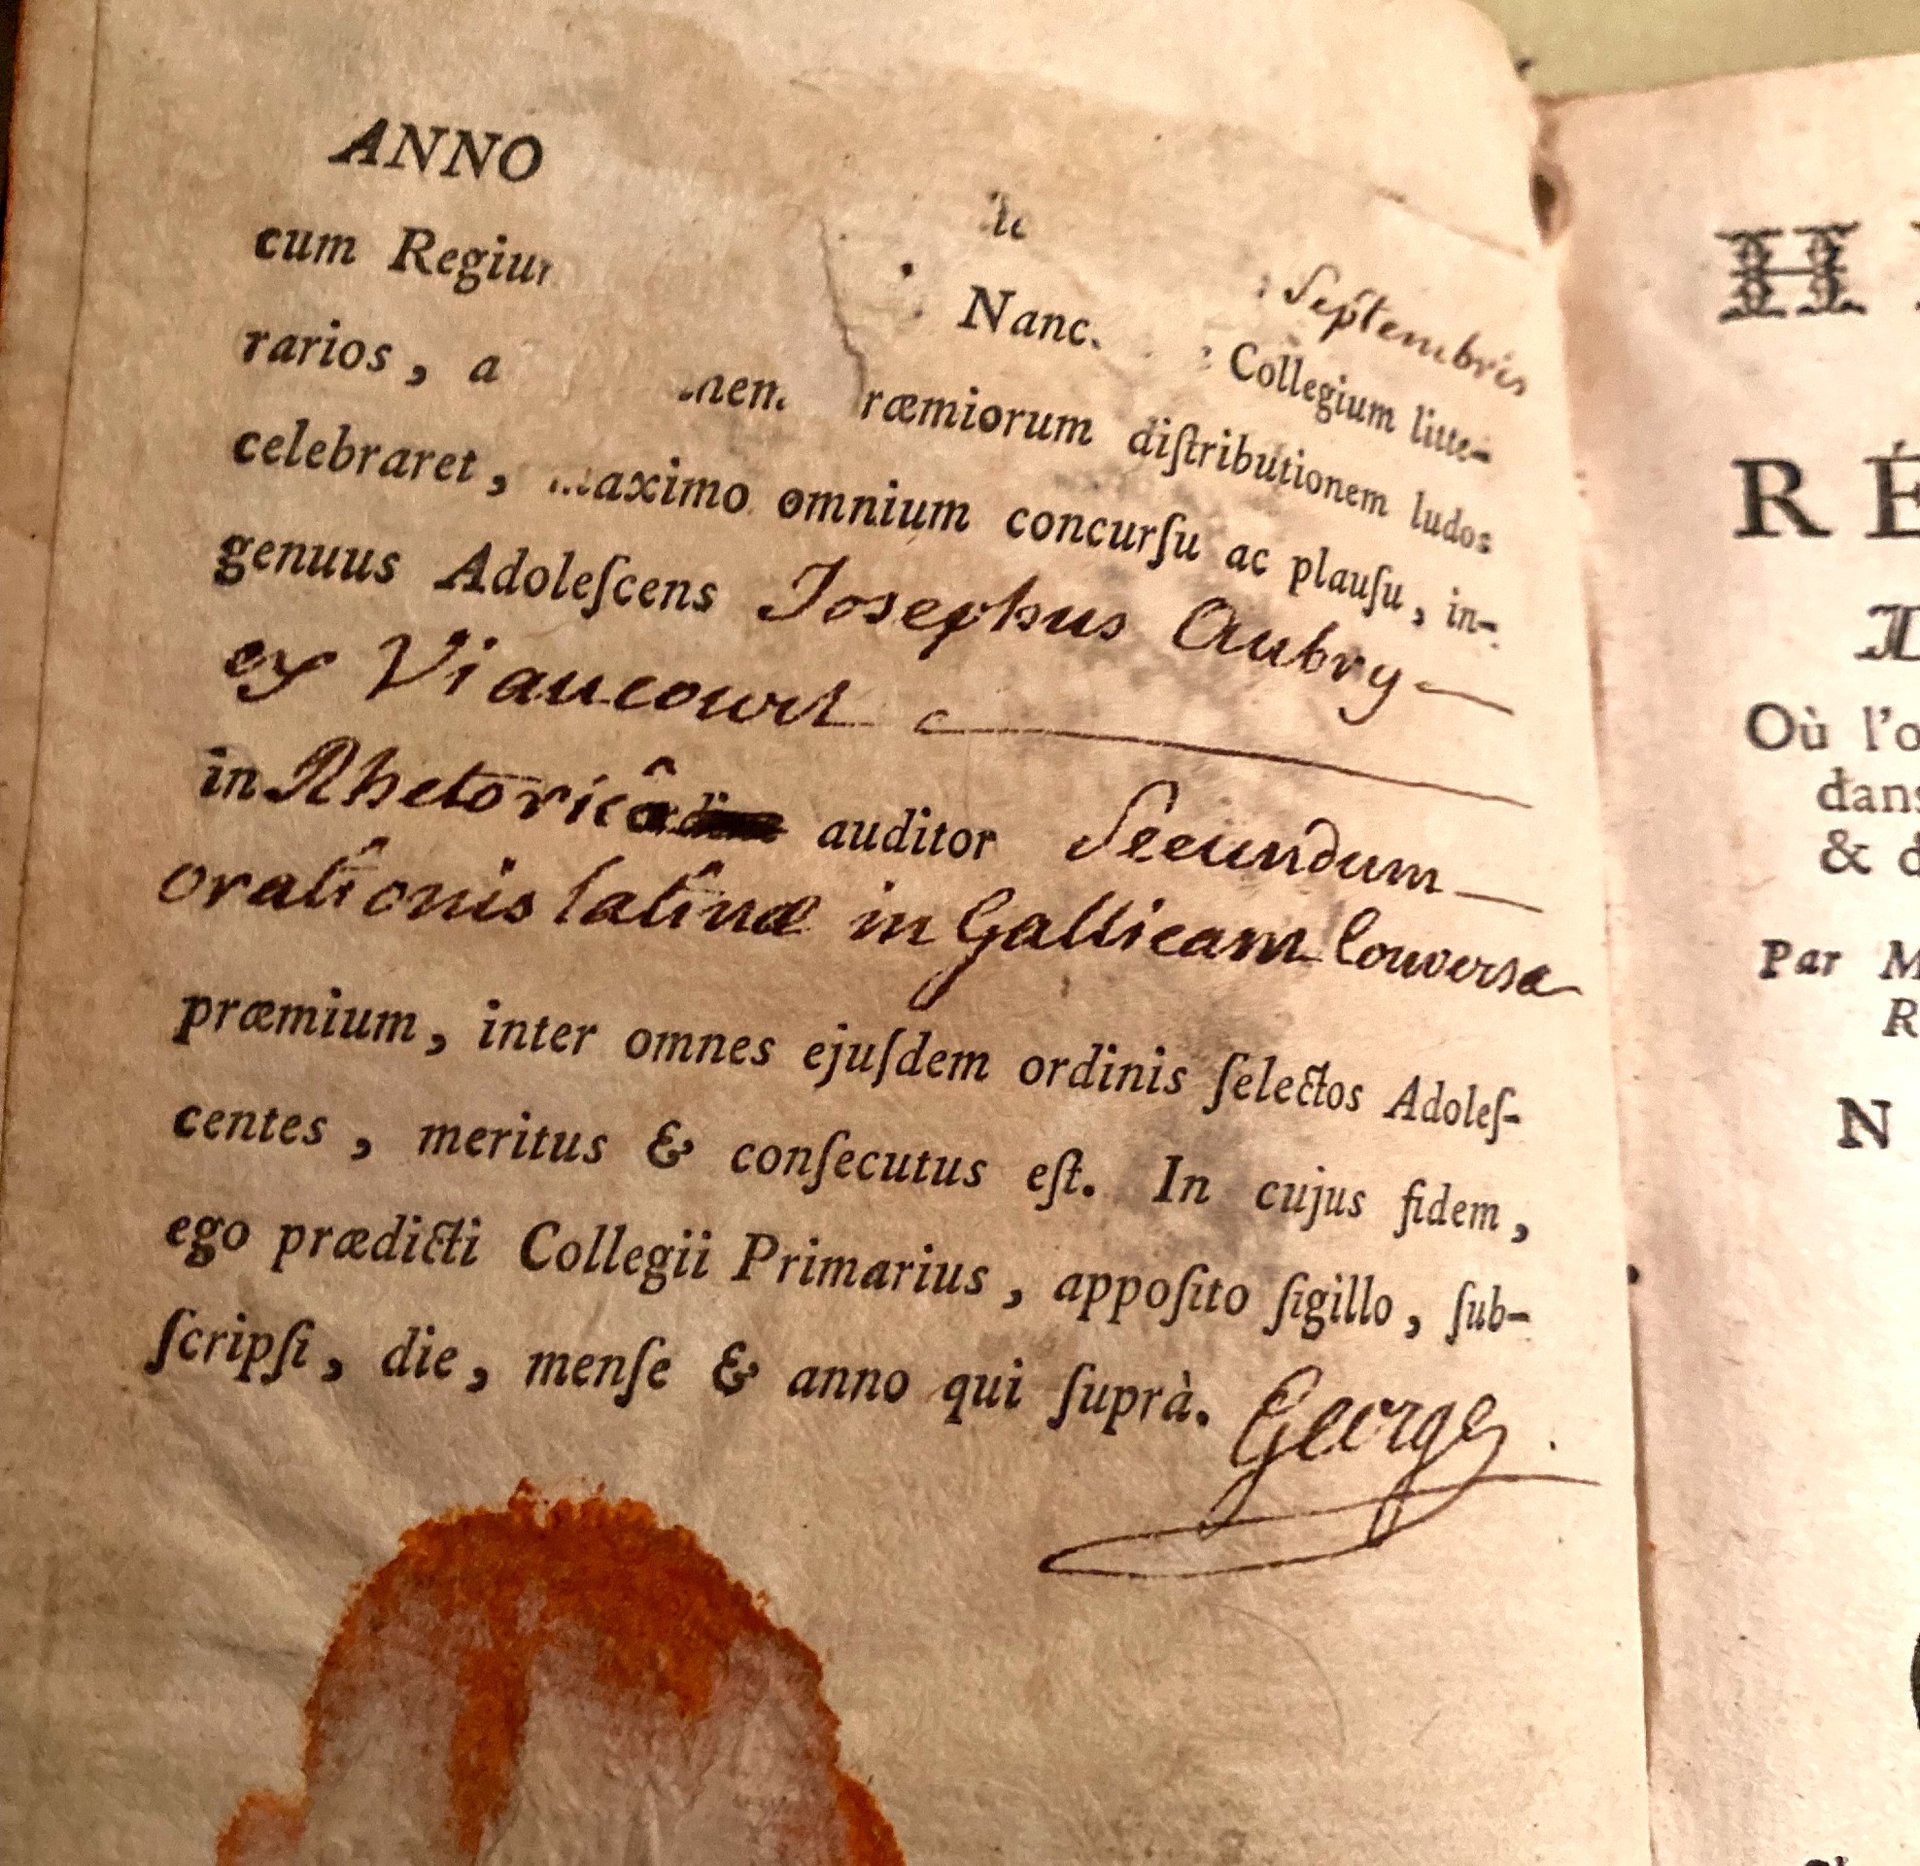 ANNO
Septembris
cum Regiu Nanc. Collegium litte-
rarios, a ræmiorum diſtributionem ludos
celebraret, maximo omnium concurſu ac plauſu, in-
genuus Adoleſcens Josephus Aubry
ex Viaucourt
in Rhetoricâ auditor Secundum
orationis latinæ in Gallicam Conversæ
præmium, inter omnes ejuſdem ordinis ſelectos Adoleſ-
centes, meritus & conſecutus eſt. In cujus fidem,
ego prædicti Collegii Primarius, appoſito ſigillo, ſub-
ſcripſi, die, menſe & anno qui ſuprà. George
H
RÉ
Où l'o
dans
& d
Par M
R
N